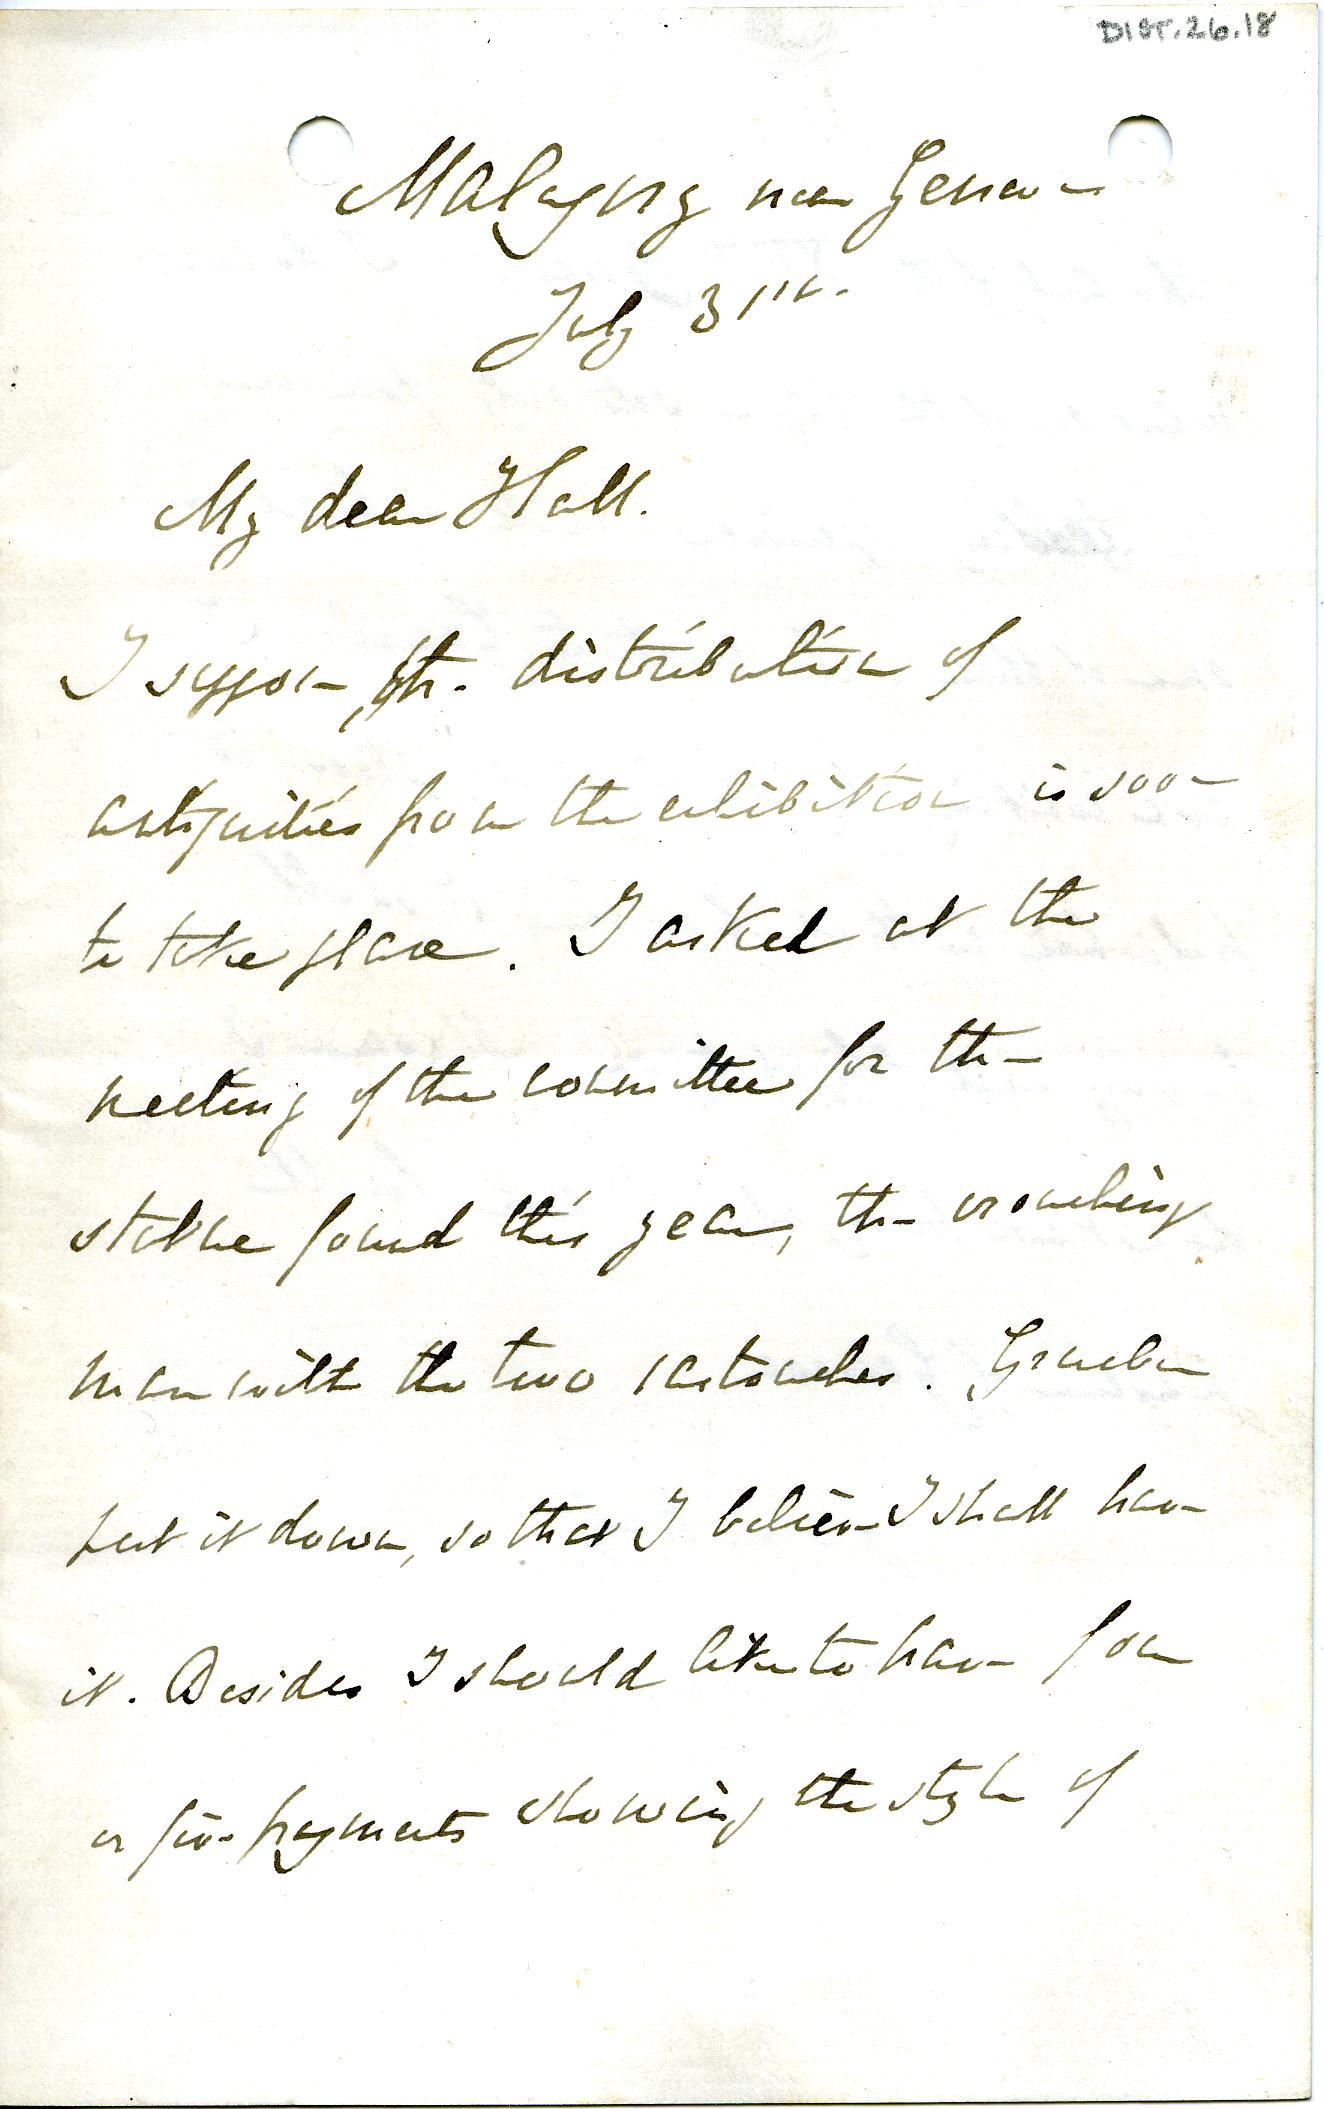 DIST.26.18
Malagny near Geneva
July 31st.
My dear Hall.
I suppose, the distribution of
antiquities from the exhibition is soon
to take place. I asked at the
meeting of the committee for the
statue found this year, the crouching
man with the two cartouches. Grueber
put it down, so that I believe I shall have
it. Besides I should like to have four
or five fragments showing the style of